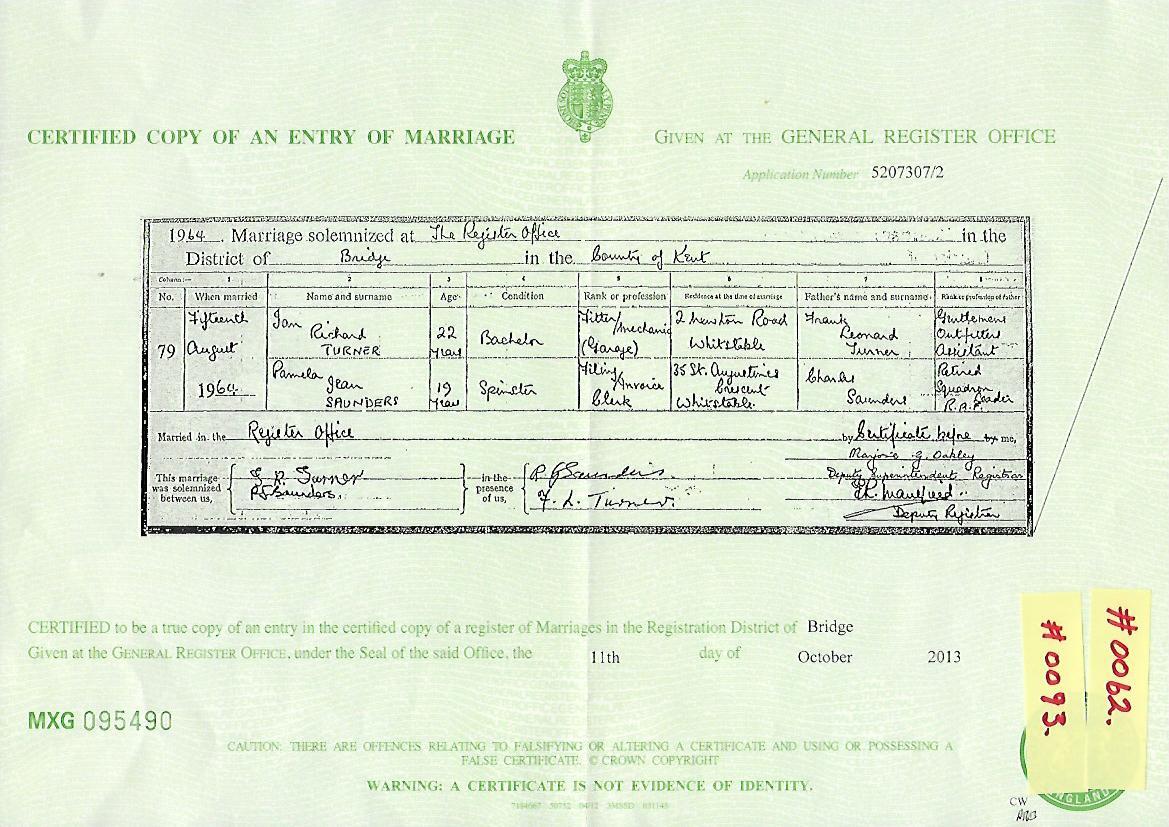 CERTIFIED COPY OF AN ENTRY OF MARRIAGE
GIVEN AT THE GENERAL REGISTER OFFICE
Application Number 5207307/2
1964. Marriage solemnized at The Register Office in the
District of Bridge in the County of Kent
Column:— 1 2 3 4 5 6 7 8
No. When married Name and surname Age Condition Rank or profession Residence at the time of marriage Father's name and surname Rank or profession of father
79 Fifteenth August 1964
Ian Richard TURNER 22 years Bachelor Fitter/Mechanic (Garage) 2 Newton Road Whitstable Frank Leonard Turner Gentlemens Outfitters Assistant
Pamela Jean SAUNDERS 19 years Spinster Filing/Invoice Clerk 35 St. Augustines Crescent Whitstable. Charles Saunders Retired Squadron Leader R.A.F.
Married in the Register Office by Certificate before me,
Marjorie G. Oakley
Deputy Superintendent Registrar
This marriage was solemnized between us, I. R. Turner P J Saunders.
in the presence of us, Saunders F. L. Turner.
Deputy Registrar
CERTIFIED to be a true copy of an entry in the certified copy of a register of Marriages in the Registration District of Bridge
Given at the GENERAL REGISTER OFFICE, under the Seal of the said Office, the 11th day of October 2013
MXG 095490
CAUTION: THERE ARE OFFENCES RELATING TO FALSIFYING OR ALTERING A CERTIFICATE AND USING OR POSSESSING A
FALSE CERTIFICATE. © CROWN COPYRIGHT
WARNING: A CERTIFICATE IS NOT EVIDENCE OF IDENTITY.
#0062.
#0093.
ENGLAND
CW